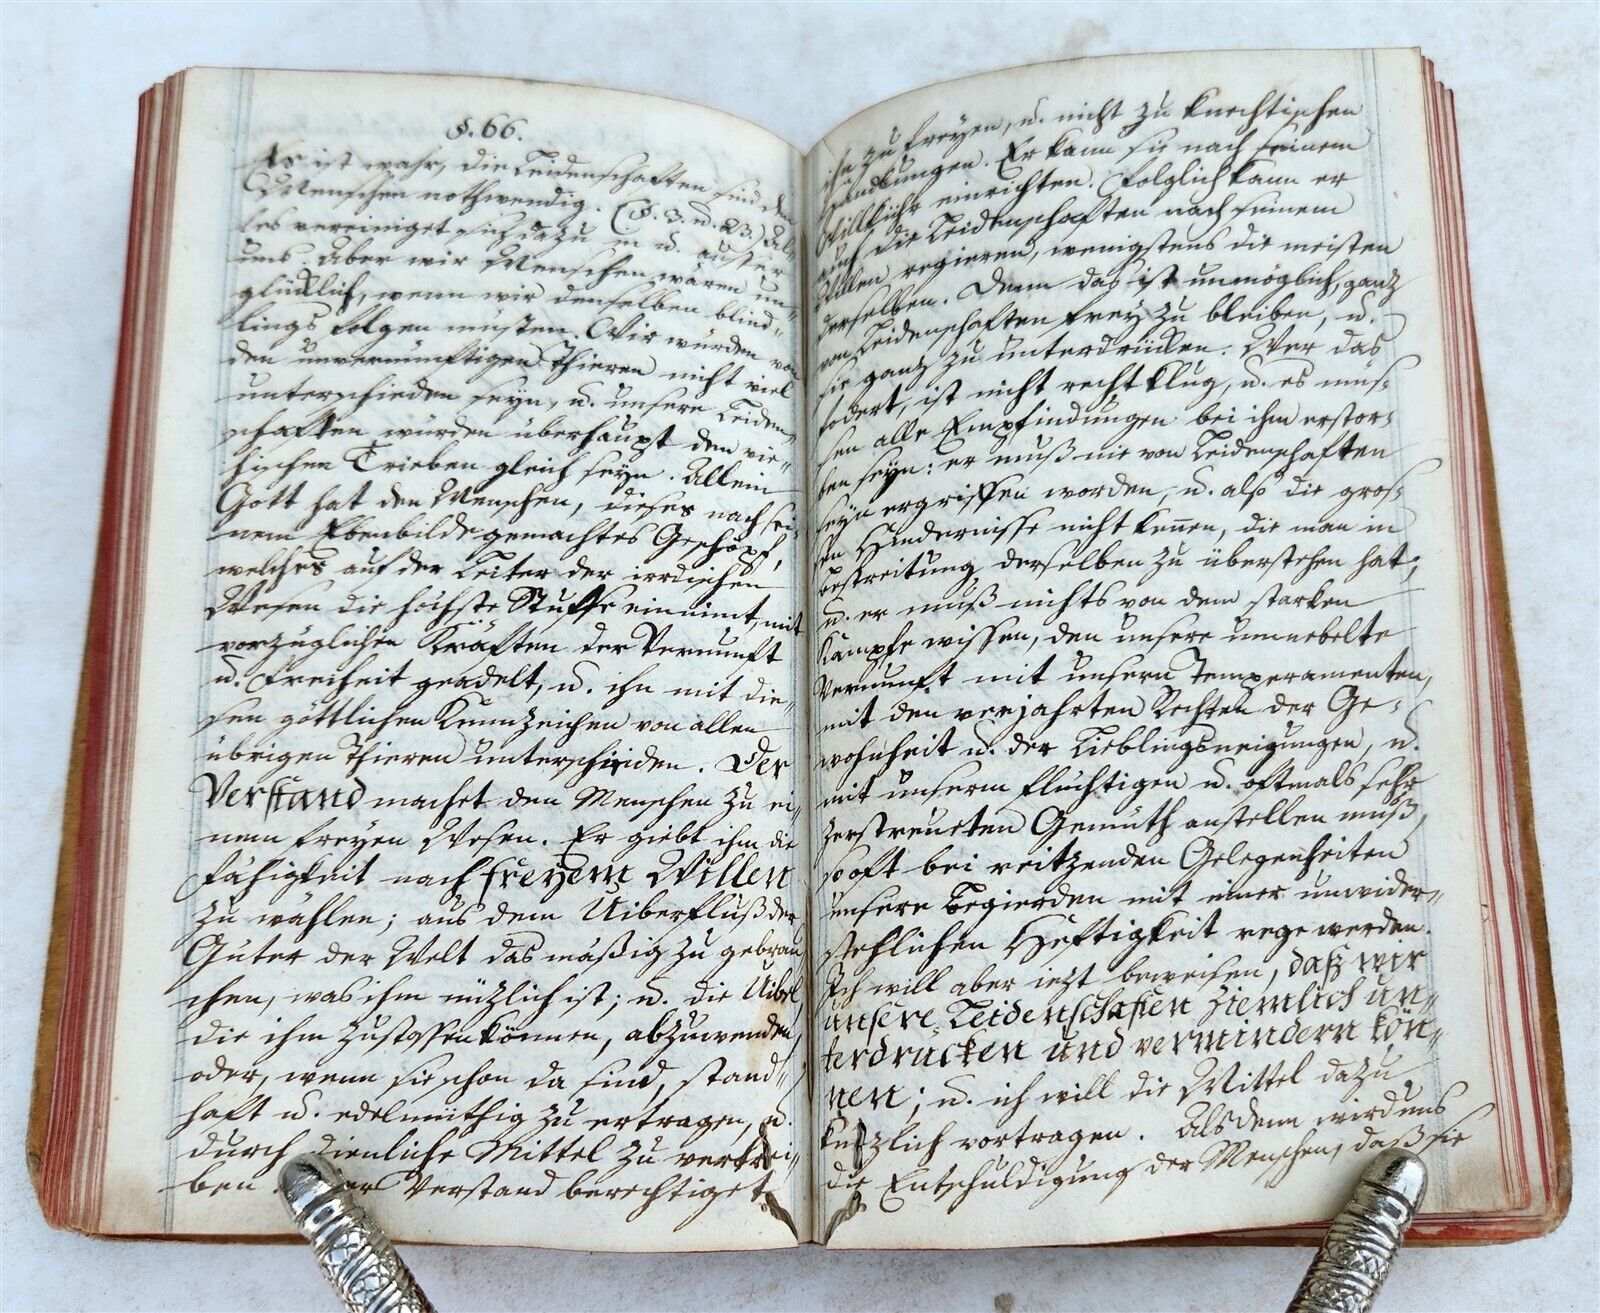 §. 66.
Es ist wahr, die Leidenschaften sind den
Menschen nothwendig. (§. 3. u. 23.) Al-
les vereiniget sich dazu in u. ausser
uns. Aber wir Menschen wären un-
glücklich, wenn wir denselben blind-
lings folgen müsten. Wir würden von
den unvernünftigen Thieren nicht viel
unterschieden seyn, u. unsere Leiden-
schaften würden überhaupt den vie-
hischen Trieben gleich seyn. Allein
Gott hat den Menschen, dieses nach sei-
nem Ebenbilde gemachtes Geschöpf,
welches auf der Leiter der irrdischen
Wesen die höchste Stuffe einnimt, mit
vorzüglichen Kräften der Vernunft
u. Freiheit geadelt, u. ihn mit die-
sen göttlichen Kennzeichen von allen
übrigen Thieren unterschieden. Der
Verstand machet den Menschen zu ei-
nem freyen Wesen. Er giebt ihm die
Fähigkeit nach freyem Willen
zu wählen; aus dem Uiberfluß der
Güter der Welt das mäßig zu gebrau
chen, was ihm nüzlich ist; u. die Uibel,
die ihm zustossen können, abzuwenden,
oder, wenn sie schon da sind, stand-
haft u. edelmüthig zu ertragen, u.
durch dienliche Mittel zu vertrei-
ben. Verstand berechtiget
ihn zu freyen, u. nicht zu knechtischen
Handlungen. Er kann sie nach seinem
Willkühr einrichten. Folglich kann er
auch die Leidenschaften nach seinem
Willen regieren, wenigstens die meisten
derselben. Denn das ist unmöglich, ganz
von Leidenschaften frey zu bleiben, u.
sie ganz zu unterdrücken. Wer das
fodert, ist nicht recht klug, u. es müs-
sen alle Empfindungen bei ihm erstor-
ben seyn: er muß nie von Leidenschaften
seyn ergriffen worden, u. also die gros-
sen Hindernisse nicht kennen, die man in
Bestreitung derselben zu überstehen hat;
u. er muß nichts von dem starken
Kampfe wissen, den unsere umnebelte
Vernunft mit unsern Temperamenten,
mit den verjahrten Rechten der Ge-
wohnheit u. der Lieblingsneigungen, u.
mit unserm fluchtigen u. oftmals sehr
zerstreueten Gemüth anstellen muß,
so oft bei reitzenden Gelegenheiten
unsere Begierden mit einer unwider-
stehlichen Heftigkeit rege werden.
Ich will aber iezt beweisen, daß wir
unsere Leidenschaften ziemlich un-
terdrücken und vermindern kön-
nen; u. ich will die Mittel dazu
kürzlich vortragen. Alsdenn wird uns
die Entschuldigung der Menschen, daß sie